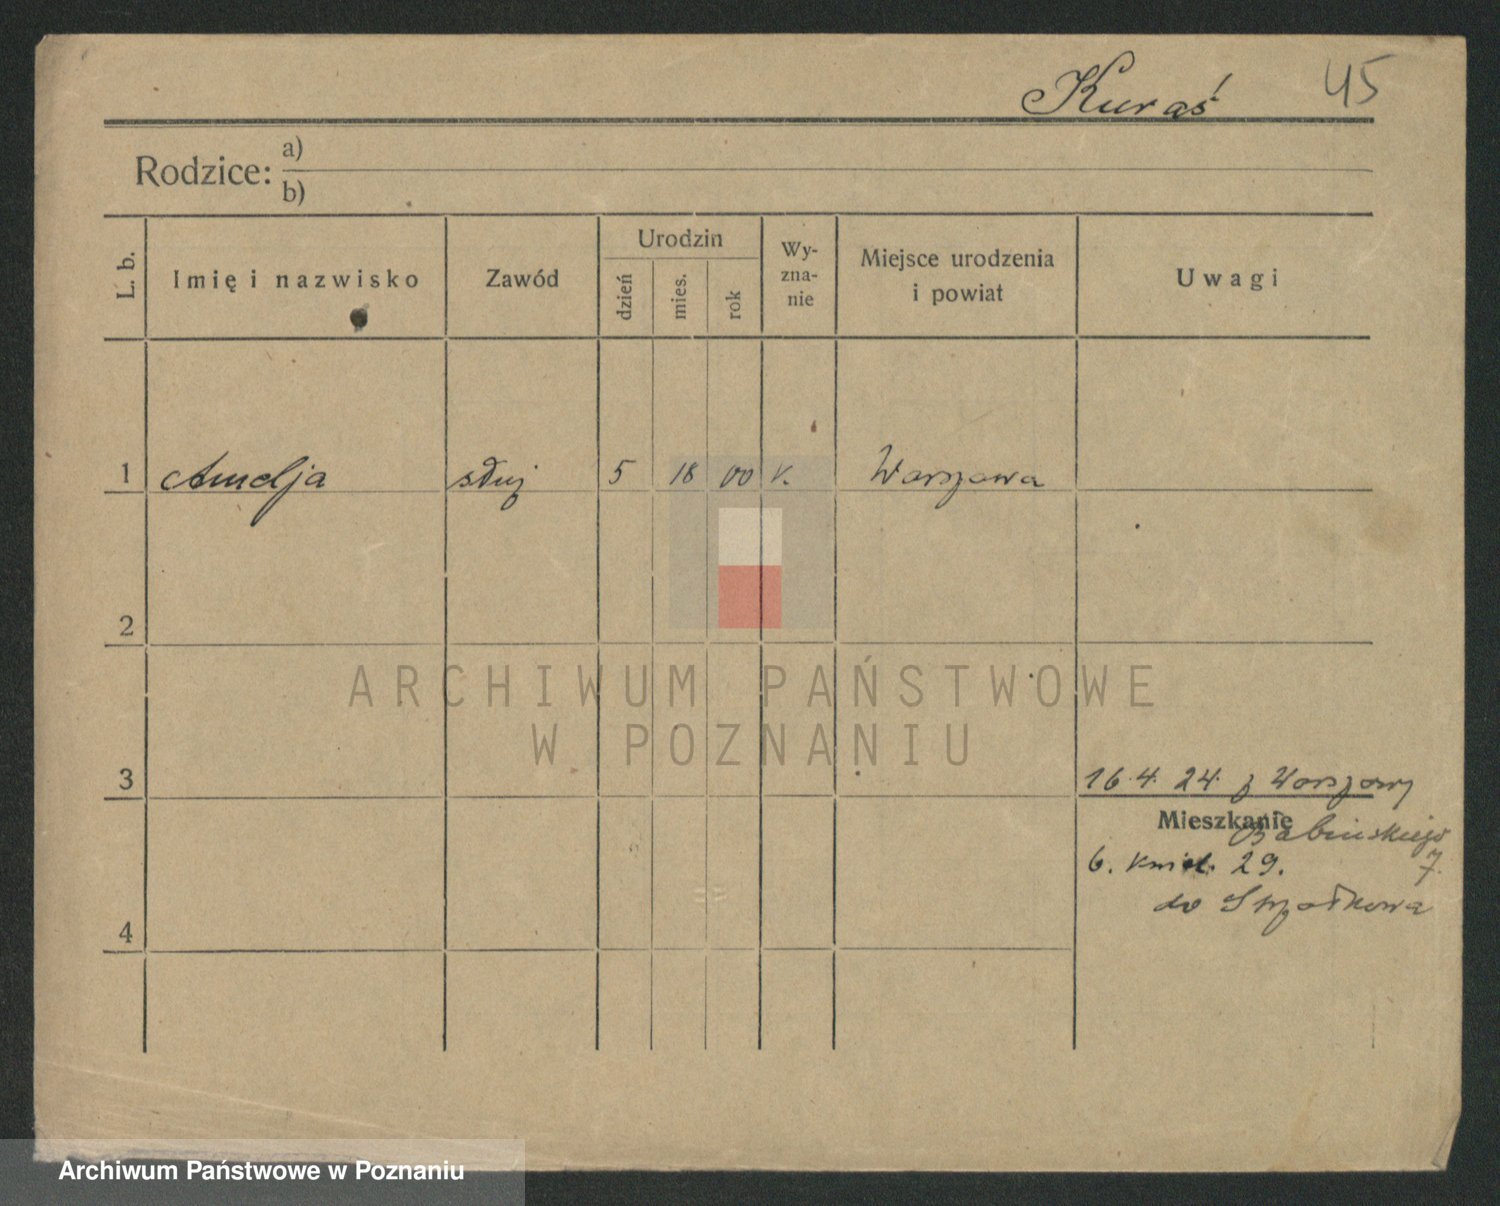 Kuraś 45
Rodzice: a)
b)
L. b.
Imię i nazwisko
Zawód
Urodzin
dzień
mies.
rok
Wy-
zna-
nie
Miejsce urodzenia
i powiat
Uwagi
1 Amelja służ 5 18 00 k. Warszawa
2
ARCHIWUM PAŃSTWOWE
W POZNANIU
3
16.4. 24. z Warszawy
Mieszkanie
Babińskiego
6. kwiet. 29. 7.
do Strzałkowa
4
Archiwum Państwowe w Poznaniu